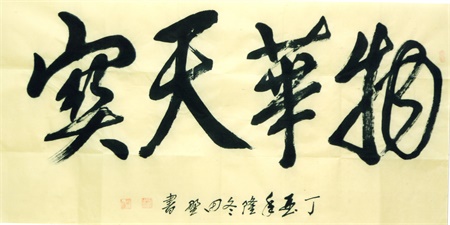 物華天寶
丁亥年隆冬田書